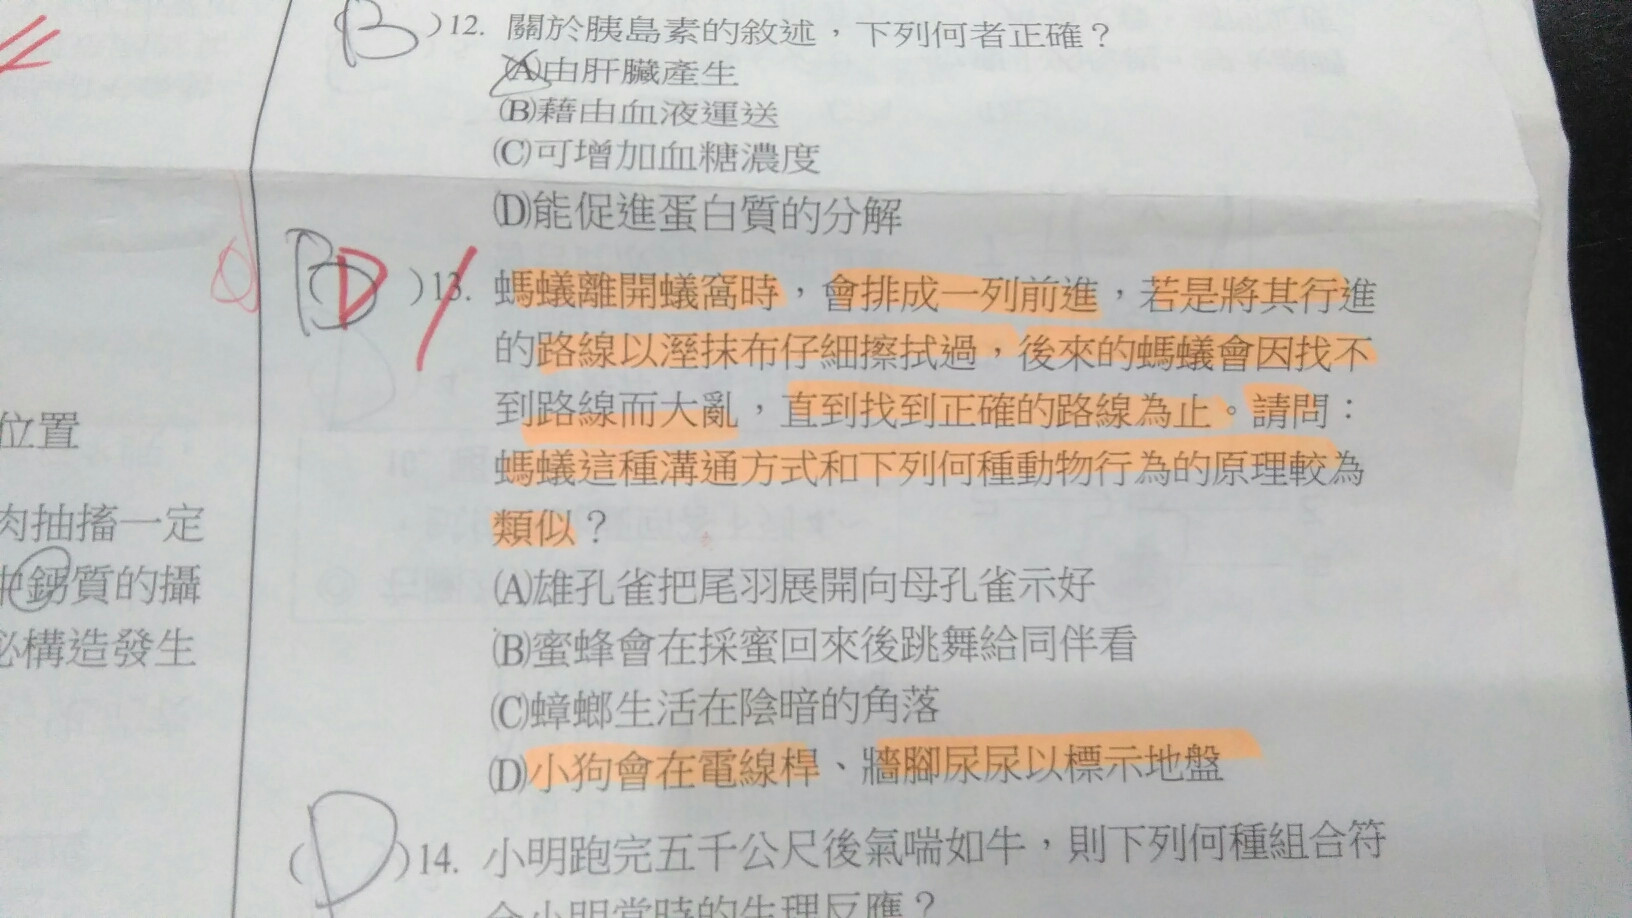 (B)12. 關於胰島素的敘述，下列何者正確？
(A)由肝臟產生
(B)藉由血液運送
(C)可增加血糖濃度
(D)能促進蛋白質的分解
(B D)13. 螞蟻離開蟻窩時，會排成一列前進，若是將其行進
的路線以溼抹布仔細擦拭過，後來的螞蟻會因找不
到路線而大亂，直到找到正確的路線為止。請問：
螞蟻這種溝通方式和下列何種動物行為的原理較為
類似？
(A)雄孔雀把尾羽展開向母孔雀示好
(B)蜜蜂會在採蜜回來後跳舞給同伴看
(C)蟑螂生活在陰暗的角落
(D)小狗會在電線桿、牆腳尿尿以標示地盤
(D)14. 小明跑完五千公尺後氣喘如牛，則下列何種組合符
合小明當時的生理反應？
位置
肉抽搐一定
中鈣質的攝
必構造發生